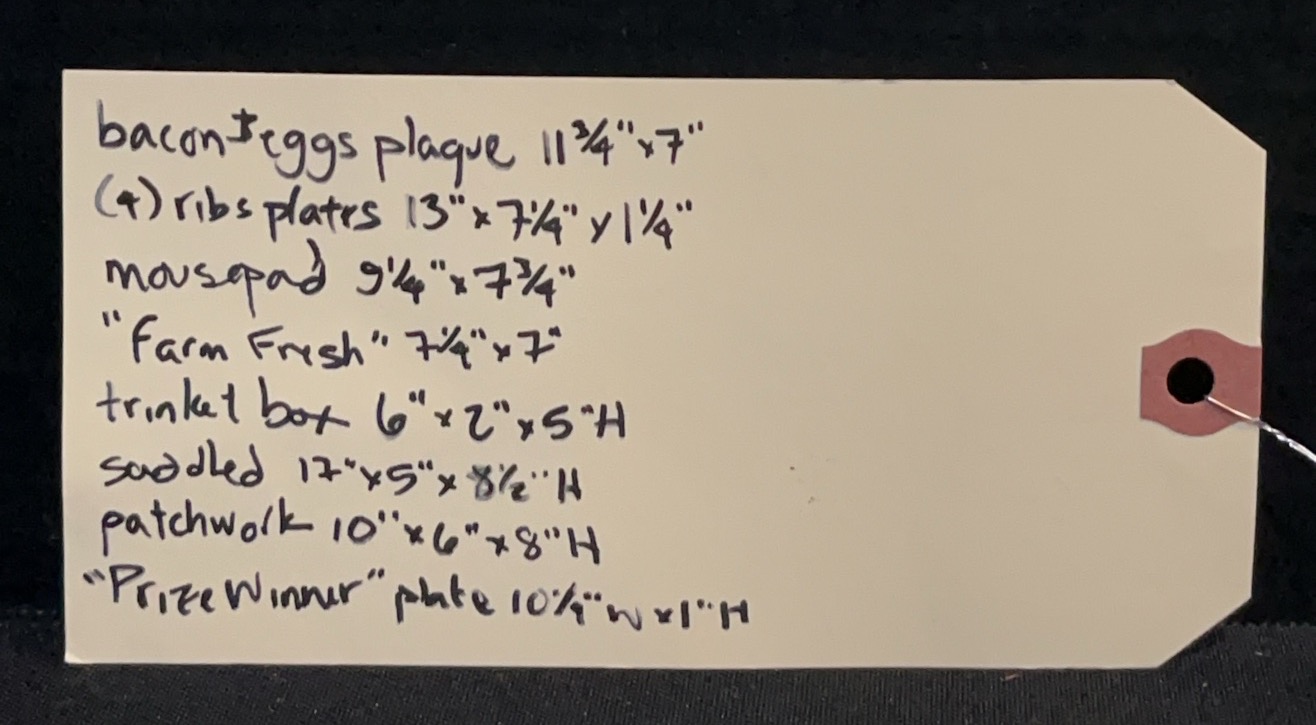 bacon + eggs plaque 11 3/4" x 7"
(4) ribs plates 13" x 7 1/4" x 1 1/4"
mousepad 9 1/4" x 7 3/4"
"Farm Fresh" 7 1/4" x 7"
trinket box 6" x 2" x 5" H
saddled 17" x 5" x 8 1/2" H
patchwork 10" x 6" x 8" H
"Prize Winner" plate 10 1/4" W x 1" H